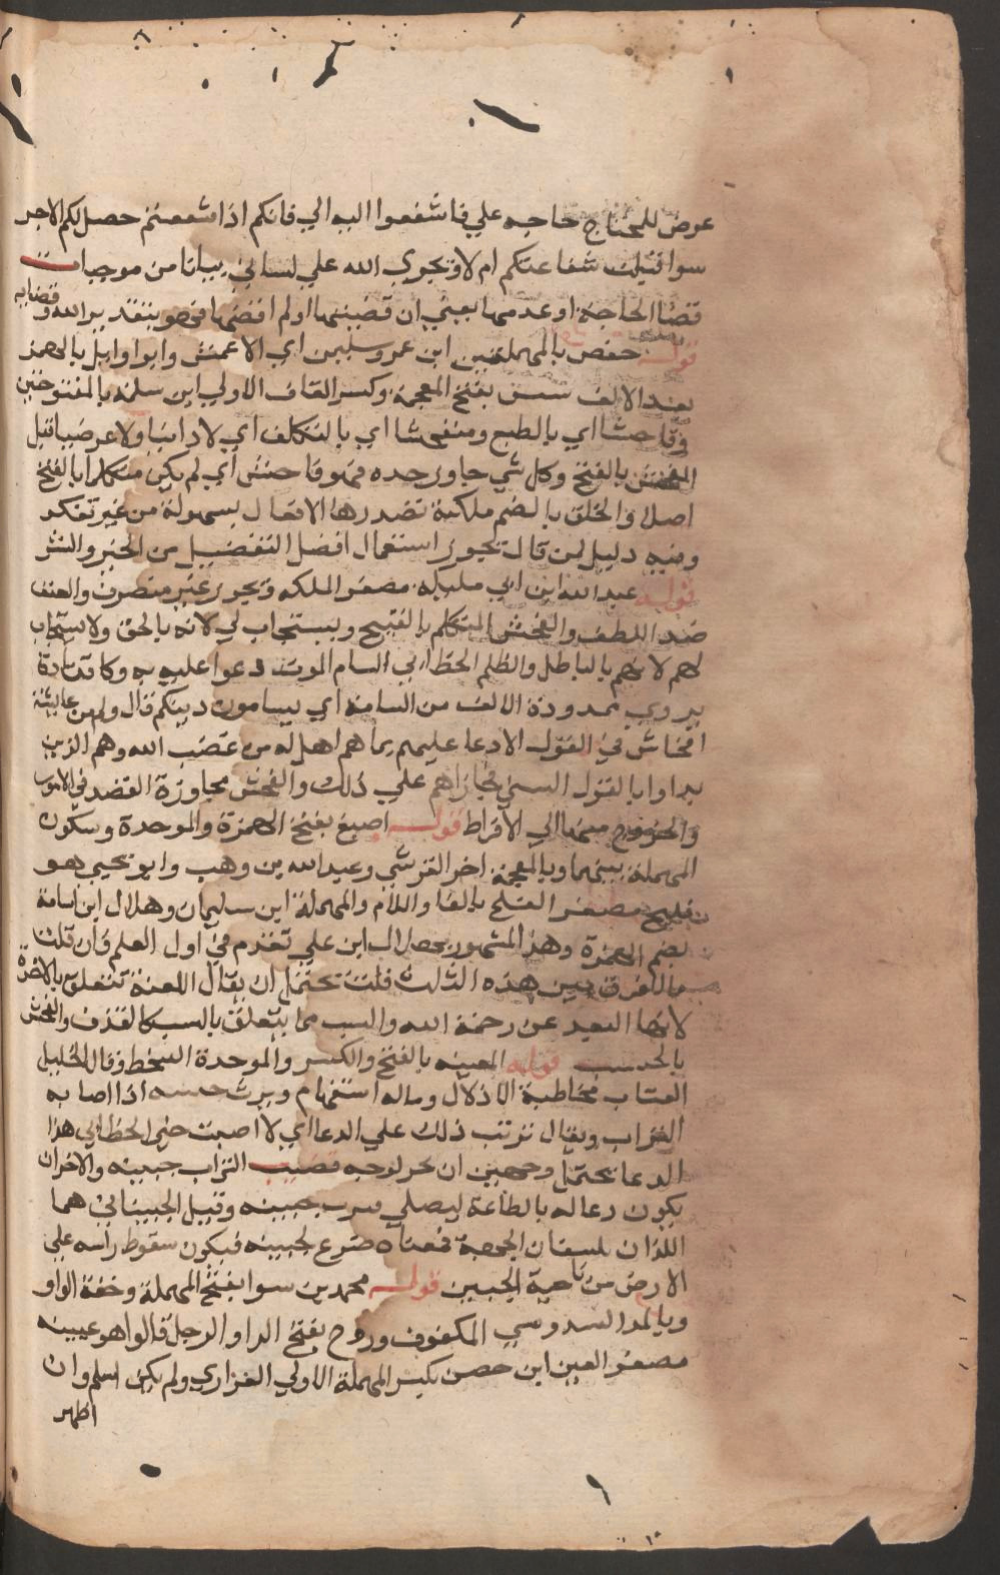 عرض للمحتاج حاجه علي فاشفعوا اليه الي فانكم اذا شفعتم حصل لكم الاجر
سوا قبلت شفاعتكم ام لا ويجري الله علي لساني بيانا من موجبات
قضا الحاجة او عدمها يعني ان قضيتها اولم اقضها فهو بتقدير الله وقضايه
قوله حفص بالمهملتين ابن عمر وسليمن اي الاعمش وابو وايل بالهمز
بعد الالف بفتح المعجمة وكسر القاف الاولي ابن سلمه بالمفتوحتين
وفاحشا اي بالطبع ومتفحشا اي بالتكلف اي لا ذاتيا ولا عرضيا قيل
الفحش بالفتح وكل شي جاوز حده فهو فاحش اي لم يكن متكلما بالقبح
اصلا والخلق بالضم ملكة تصدر بها الافعال بسهولة من غير تفكر
وفيه دليل لمن قال يجوز استعمال افضل التفضيل من الخير والشر
قوله عبد الله ابن ابي مليكه مصغر الملكه ويجوز غير منصرف والعنف
ضد اللطف والفحش المتكلم بالقبيح ويستجاب لي لانه بالحق ولا يستجاب
لهم لانهم بالباطل والظلم الخطابي السام الموت دعوا عليه به وكا قتادة
يروي ممدودة الالف من السامة اي يسامون دينكم قال ولم من عايشة
افحاش في القول الا دعا عليهم بما هم اهل له من غضب الله وهم الذين
بداوا بالقول السي فجازاهم علي ذلك والفحش مجاوزة القصد في الامور
والخروج منها الي الافراط قوله اصبغ بفتح الهمزة والموحدة وسكون
المهملة بينهما وبالمعجمة اخر القرشي وعبد الله بن وهب وابو يحيي هو
فليح مصغر الفلح بالفا واللام والمهملة ابن سليمان وهلال ابن اسامة
بضم الهمزة وهذا المشهور بهلال ابن علي تقدم في اول العلم فان قلت
ما الفرق بين هذه الثلث قلت يحتمل ان يقال اللعنة تتعلق بالاخرة
لانها البعد عن رحمة الله والسب مما يتعلق بالنسب كالقذف والفحش
بالحسب قوله المعتبه بالفتح والكسر والموحدة السخط وقال الخليل
العتاب مخاطبة الاذلال وماله استفهام وترب جبينه اذا اصابه
التراب ويقال تربت ذلك علي الدعا اي لا اصبت خيرا الخطابي هذا
الدعا يحتمل وجهين ان يخر لوجهه فصيب التراب جبينه والاخر ان
يكون دعا له بالطاعة ليصلي فيترب جبينه وقيل الجبينان هما
اللذان يلتفان الجبهة فمعناه صرع لجبينه فيكون سقوط راسه علي
الارض من ناحية الجبين قوله محمد بن سوا بفتح المهملة وخفة الواو
وبالمد السدوسي المكفوف وروح بفتح الرا والرجل قالوا هو عيينه
مصغر العين ابن حصن بكسر المهملة الاولي الفزاري ولم يكن اسلم وان
اظهر